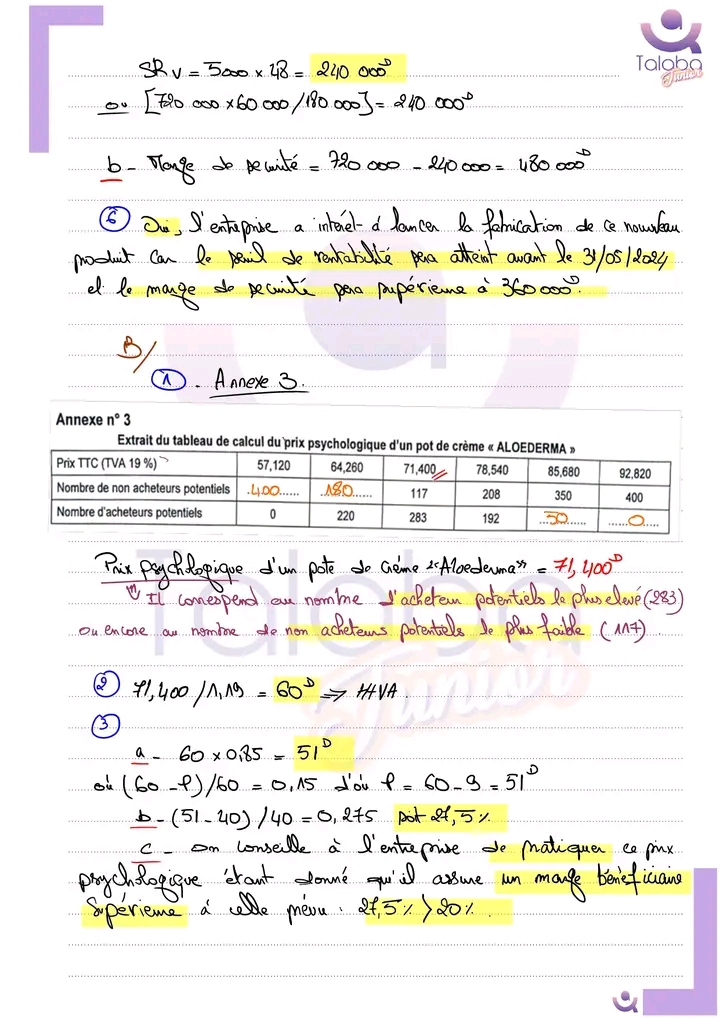 Taloba
Junior
SR v = 5000 x 48 = 240 000ᴰ
ou [720 000 x 60 000 / 180 000] = 240 000ᴰ
b - Marge de sécurité = 720 000 - 240 000 = 480 000ᴰ
6 Oui, l'entreprise a intérêt à lancer la fabrication de ce nouveau
produit car le seuil de rentabilité sera atteint avant le 31/05/2024
et la marge de sécurité sera supérieure à 360 000ᴰ.
B/
1 - Annexe 3.
Annexe n° 3
Extrait du tableau de calcul du prix psychologique d'un pot de crème « ALOEDERMA »
Prix TTC (TVA 19 %) 57,120 64,260 71,400 78,540 85,680 92,820
Nombre de non acheteurs potentiels .400...... .180...... 117 208 350 400
Nombre d'acheteurs potentiels 0 220 283 192 ....50..... ......0.....
Prix psychologique d'un pote de crème "Aloederma" = 71,400ᴰ
Il correspend au nombre d'acheteur potentiels le plus elevé (283)
ou encore au nombre de non acheteurs potentiels le plus faible (117)
2 71,400 / 1,19 = 60ᴰ => HTVA.
3
a - 60 x 0,85 = 51ᴰ
où (60 - P)/60 = 0,15 d'où P = 60 - 9 = 51ᴰ
b - (51 - 40) / 40 = 0,275 soit 27,5 %
c - on conseille à l'entreprise de pratiquer ce prix
psychologique étant donné qu'il assure un marge bénéficiaire
Supérieure à celle prévu : 27,5 % > 20 %.
Taloba
Junior